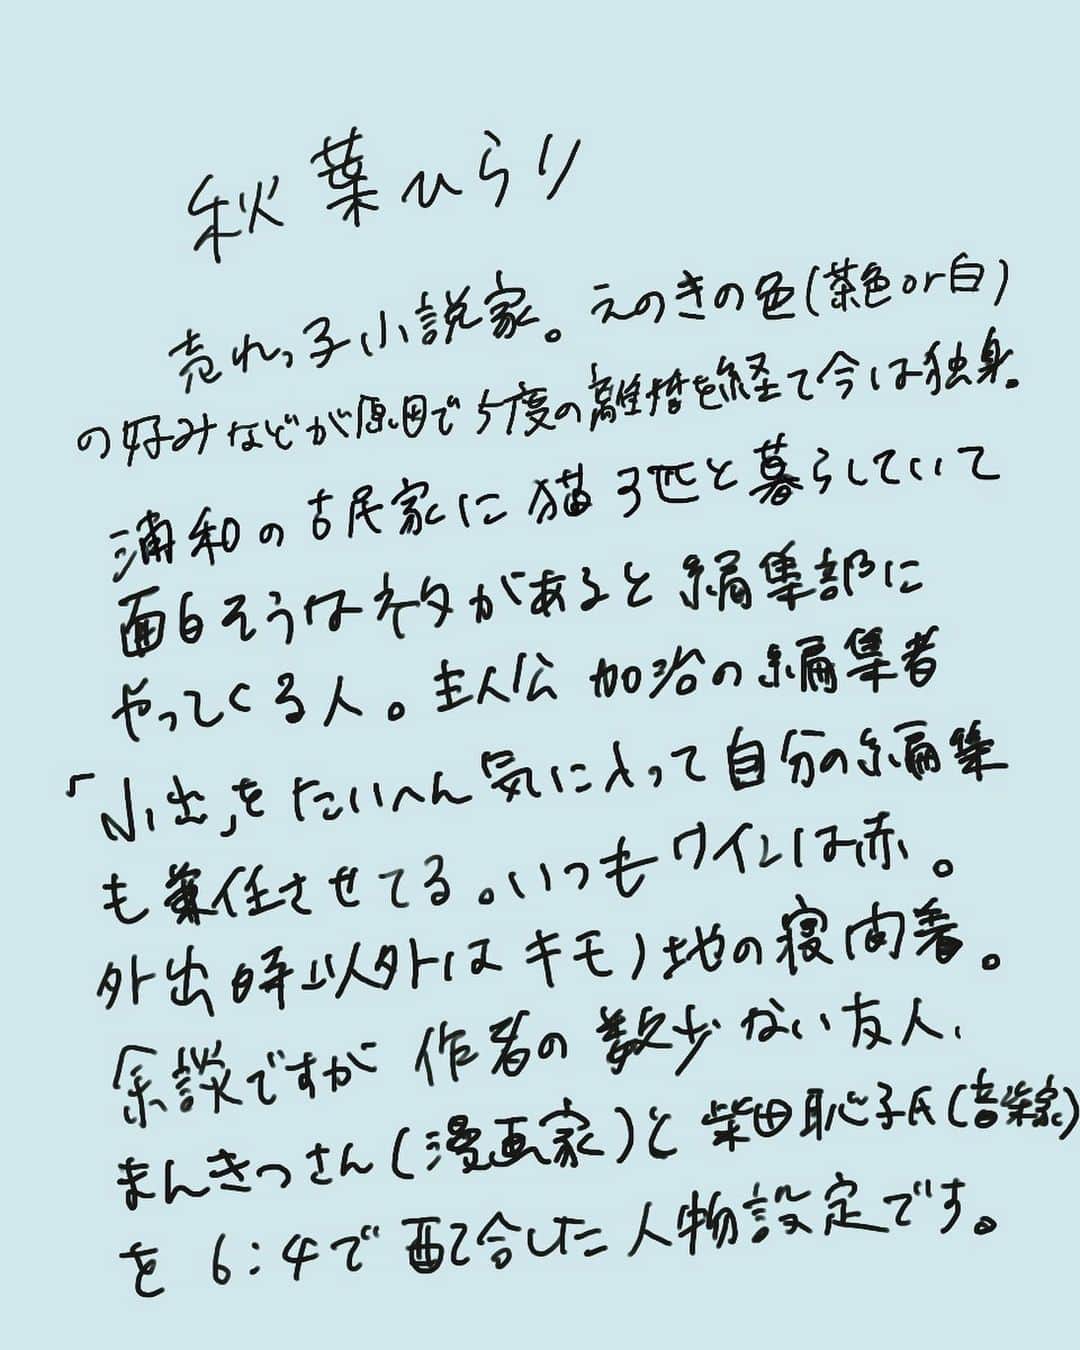 秋葉ひらり
売れっ子小説家。えのきの色(茶色or白)
の好みなどが原因で5度の離婚を経て今は独身。
浦和の古民家に猫3匹と暮らしていて
面白そうなネタがあると編集部に
やってくる人。主人公 加治の編集者
「小出」をたいへん気に入って自分の編集
も兼任させてる。いつもワインは赤。
外出時以外はキモノ地の寝間着。
余談ですが 作者の数少ない友人、
まんきつさん(漫画家)と柴田聡子氏(音楽家)
を 6:4で配合した人物設定です。